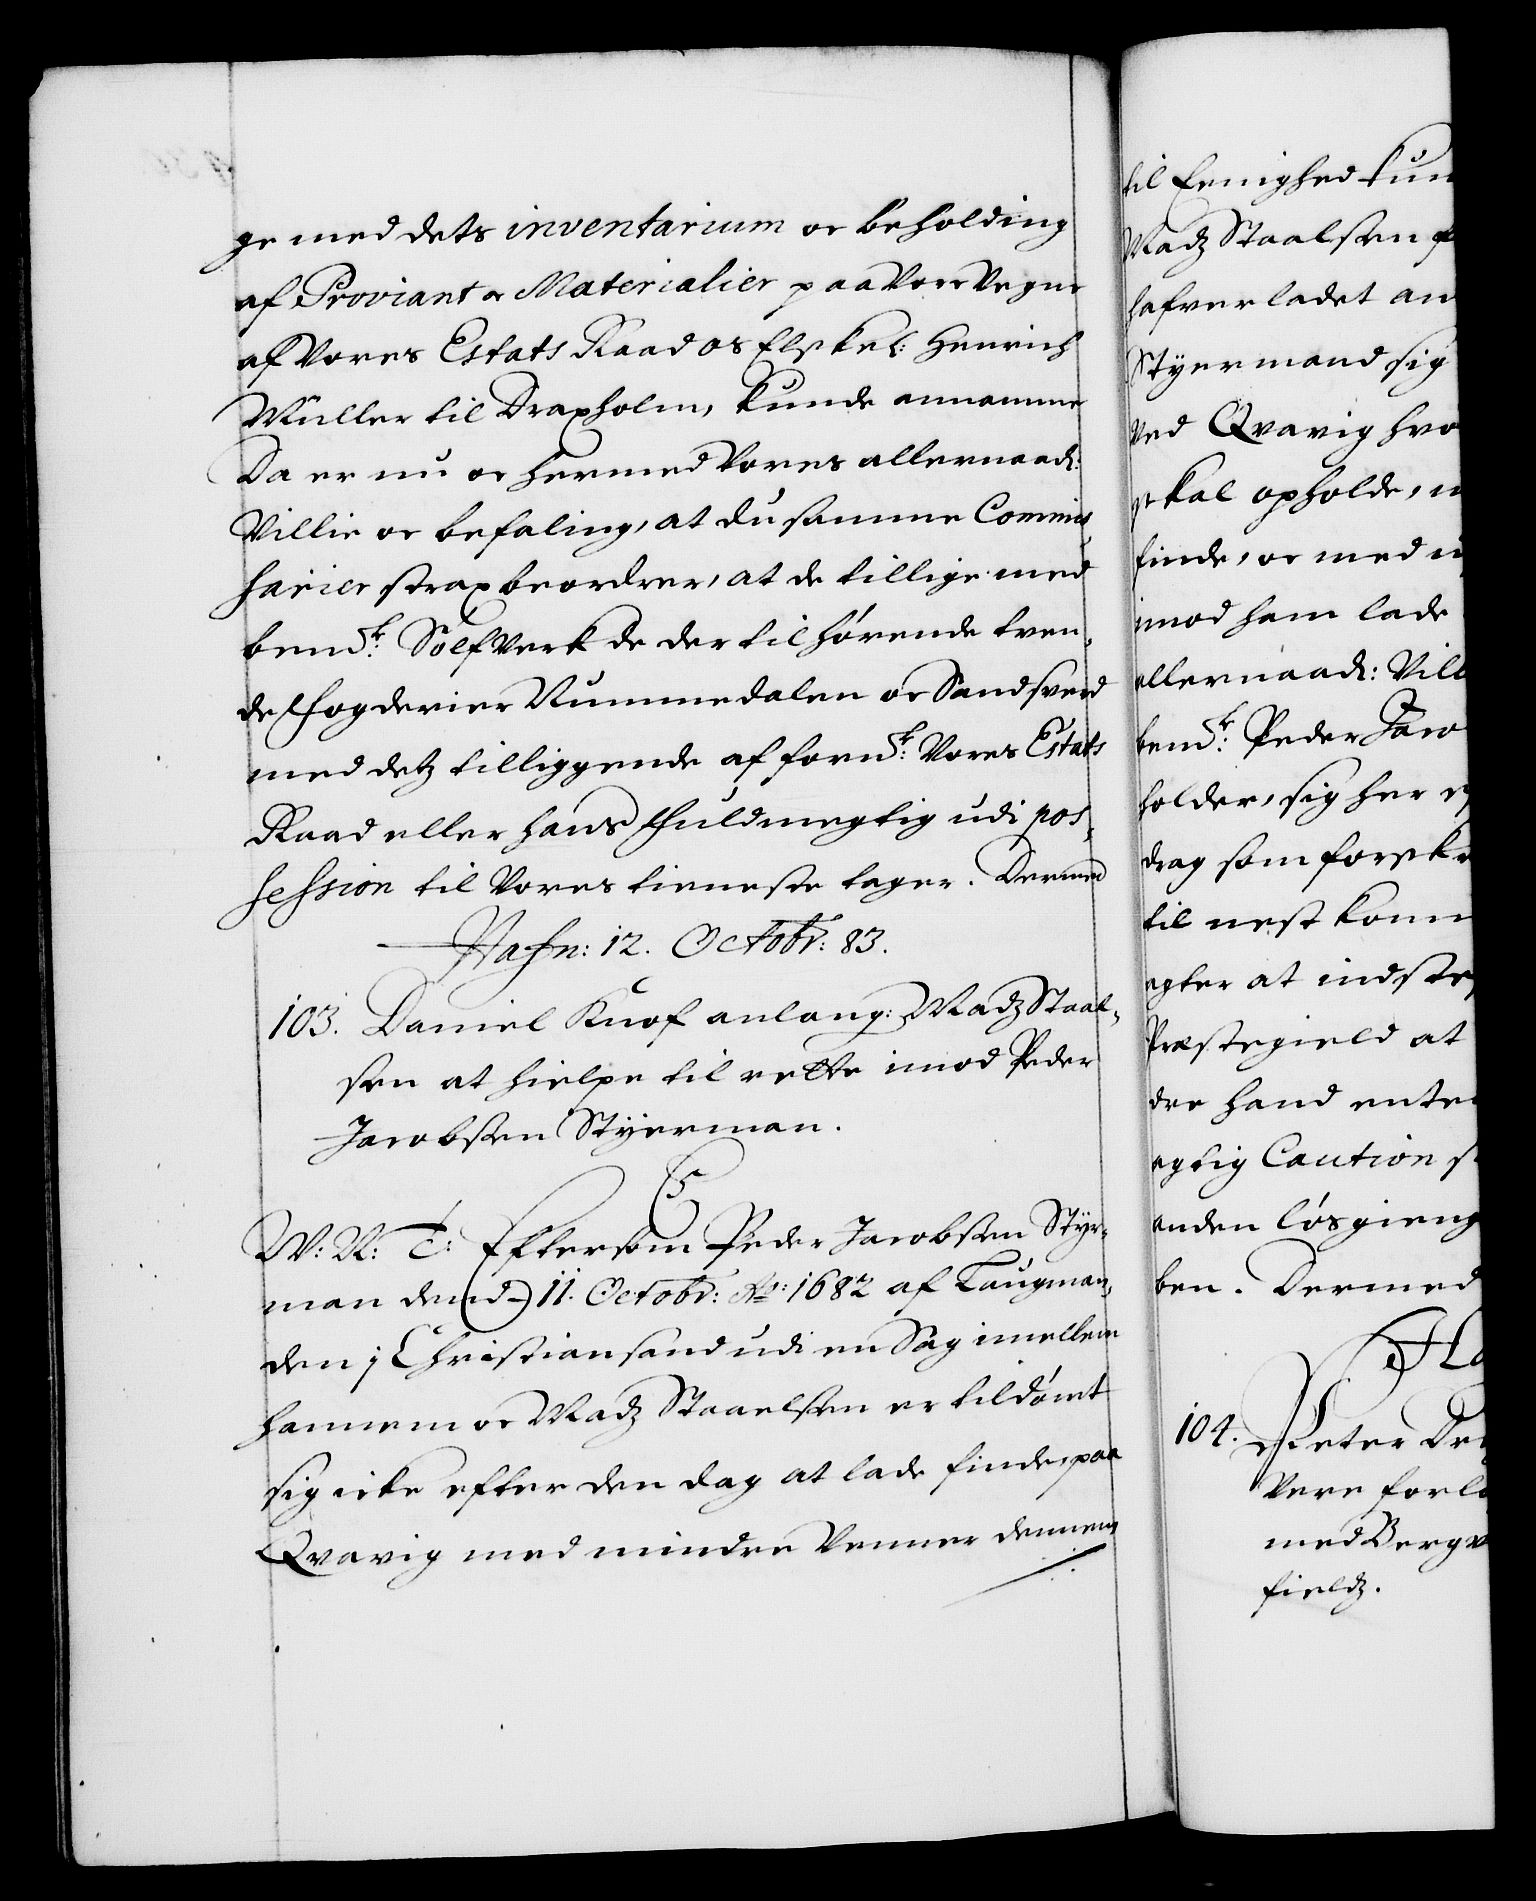 ge med dets inventarium oc beholding
af Proviant oc Materialier paa Vore Vegne
af Vores Estats Raad os Elskel: Henrich
Müller til Draxholm, kunde annamme
Da er nu oc hermed Vores allernaadl:
Villie oc befaling, at du samme Commis,
sarier strax beordrer, at de tillige med
bemt: Sølfverk de der til hørende tven,
de fogderier Nummedalen oc Sandsverd
med detz tilliggende af fornt: Vores Estats
Raad eller hans fuldmegtig udi pos,
session til Vores tieneste tager. Dermed
Hafn: 12. Octobr: 83.
103. Daniel Knof anlang: Madz Staal,
sen at hielpe til rette imod Peder
Jacobsen Styerman.
C5
W: U: T: Eftersom Peder Jacobsen Styr,
man dend 11. Octobr: Ao: 1682 af Laugman,
den i Christiansand udi en Sag imellem
hannem oc Madz Staaelsen er tildømt
sig icke efter den dag at lade finde paa
Qvavig med mindre Venner dennem
til Eenighed kun
Madz Staalsen
hafver ladet an
Styermand sig
ved Qvavig hvo
skal opholde,
finde, oc med
imod ham lade
allernaadl: Vill
bemt: Peder Jaco
holder, sig her
drag som forskr
til nest kom
agter at indste
Præstegield at
dre hand enten
agtig Caution s
anden løsgieng
ben. Dermed
Ha
104. Peter Dre
Vere forl
med Bergv
fieldz.